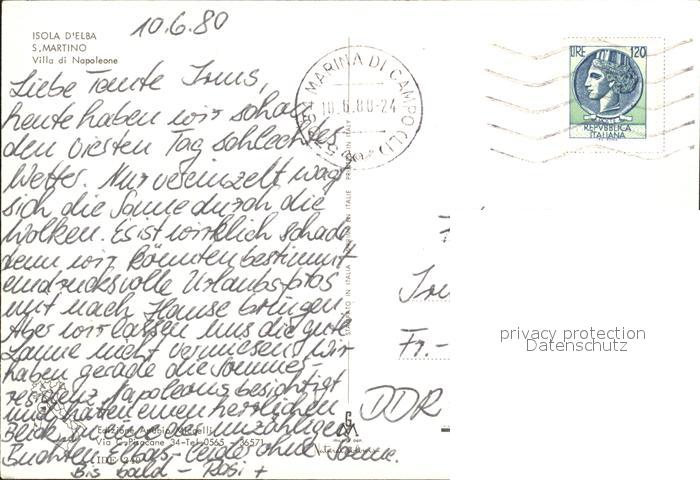 ISOLA D'ELBA
S. MARTINO
Villa di Napoleone
10.6.80
Liebe Tante Irms,
heute haben wir schon
den vierten Tag schlechtes
Wetter. Nur vereinzelt wagt
sich die Sonne durch die
Wolken. Es ist wirklich schade
denn wir könnten bestimmt
eindrucksvolle Urlaubsfotos
mit nach Hause bringen.
Aber wir lassen uns die gute
Laune nicht vermiesen. Wir
haben gerade die Sommer-
residenz Napoleons besichtigt
und hatten einen herrlichen
Blick in eine der unzähligen
Buchten Elbas - leider ohne Sonne.
Bis bald - Rosi +
Via C. Pisacane 34-Tel. 0565 - 36571
MARINA DI CAMPO (LI)
10.6.80-24
LIRE 120
REPVBBLICA
ITALIANA
Fr.-
DDR
privacy protection
Datenschutz